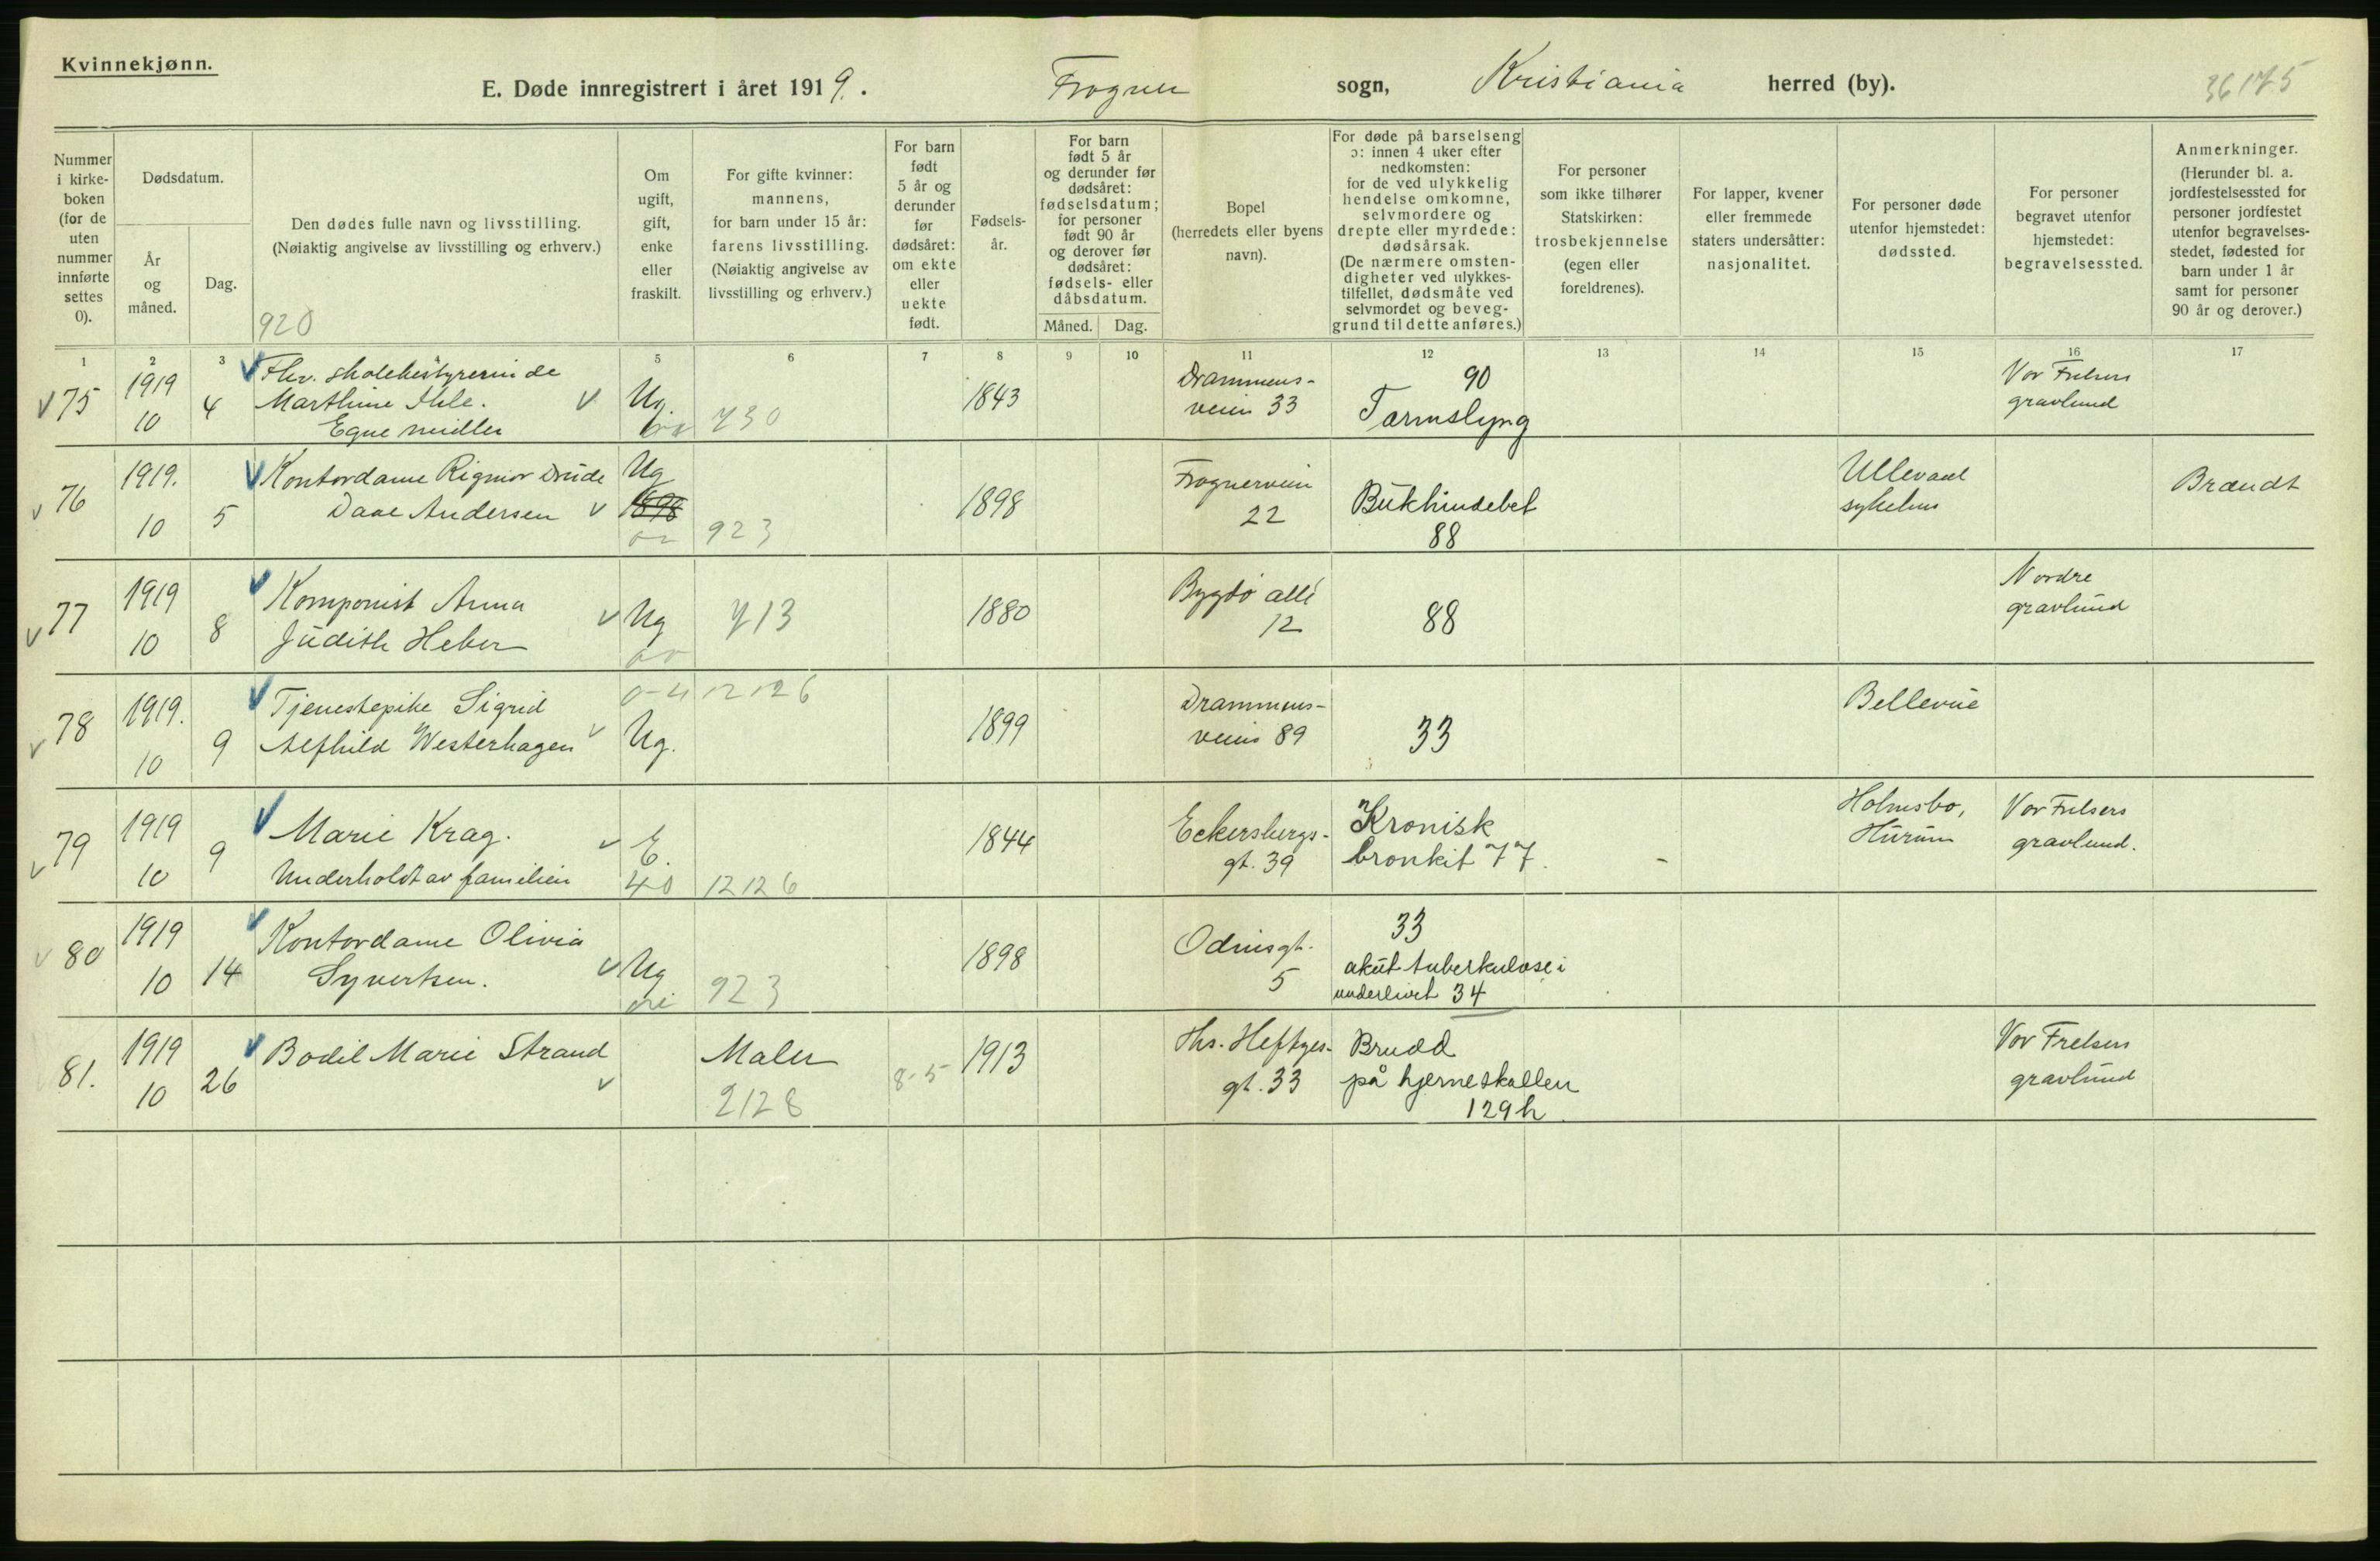 Kvinnekjønn.
E. Døde innregistrert i året 1919. Frogner sogn, Kristiania herred (by). 36175
Nummer i kirke- boken (for de uten nummer innførte settes 0).
Dødsdatum.
År og måned.
Dag.
Den dødes fulle navn og livsstilling.
(Nøiaktig angivelse av livsstilling og erhverv.)
920
Om ugift, gift, enke eller fraskilt.
For gifte kvinner: mannens, for barn under 15 år: farens livsstilling. (Nøiaktig angivelse av livsstilling og erhverv.)
For barn født 5 år og derunder før dødsåret: om ekte eller uekte født.
Fødsels- år.
For barn født 5 år og derunder før dødsåret: fødselsdatum; for personer født 90 år og derover før dødsåret: fødsels- eller dåbsdatum.
Måned. Dag.
Bopel (herredets eller byens navn).
For døde på barselseng ɔ: innen 4 uker efter nedkomsten: for de ved ulykkelig hendelse omkomne, selvmordere og drepte eller myrdede: dødsårsak. (De nærmere omsten- digheter ved ulykkes- tilfellet, dødsmåte ved selvmordet og beveg- grund til dette anføres.)
For personer som ikke tilhører Statskirken: trosbekjennelse (egen eller foreldrenes).
For lapper, kvener eller fremmede staters undersåtter: nasjonalitet.
For personer døde utenfor hjemstedet: dødssted.
For personer begravet utenfor hjemstedet: begravelsessted.
Anmerkninger. (Herunder bl. a. jordfestelsessted for personer jordfestet utenfor begravelses- stedet, fødested for barn under 1 år samt for personer 90 år og derover.)
1 2 3 5 6 7 8 9 10 11 12 13 14 15 16 17
75 1919 10 4 Fhv. skolebestyrerinde
Marthine Ihle.
Egne midler
Ug. 730 1843 Drammens-
veien 33
90
Tarmslyng
Vor Frelsers
gravlund
76 1919. 10 5 Kontordame Rigmor Drude
Daae Andersen
Ug 1898 923 1898 Frognerveien
22
Bukhindebet
88
Ullevaal
sykehus
Brændt
77 1919 10 8 Komponist Anna
Judith Heber
Ug 713 1880 Bygdø allé
12
88
Nordre
gravlund
78 1919. 10 9 Tjenestepike Sigrid
Alfhild Westerhagen
Ug. 12126 1899 Drammens-
veien 89
33
Bellevue
79 1919 10 9 Marie Krag.
Underholdt av familien
E. 40 12126 1844 Eckersbergs-
gt. 39
Kronisk
bronkit 77.
Holmsbo,
Hurum
Vor Frelsers
gravlund.
80 1919 10 14 Kontordame Olivia
Syvertsen.
Ug 923 1898 Odinsgt.
5
33
akut tuberkulose i
underlivet 34
81. 1919 10 26 Bodil Marie Strand
Maler
2128 8-5 1913 Ths. Heftyes-
gt. 33
Brudd
på hjerneskallen
129h.
Vor Frelsers
gravlund